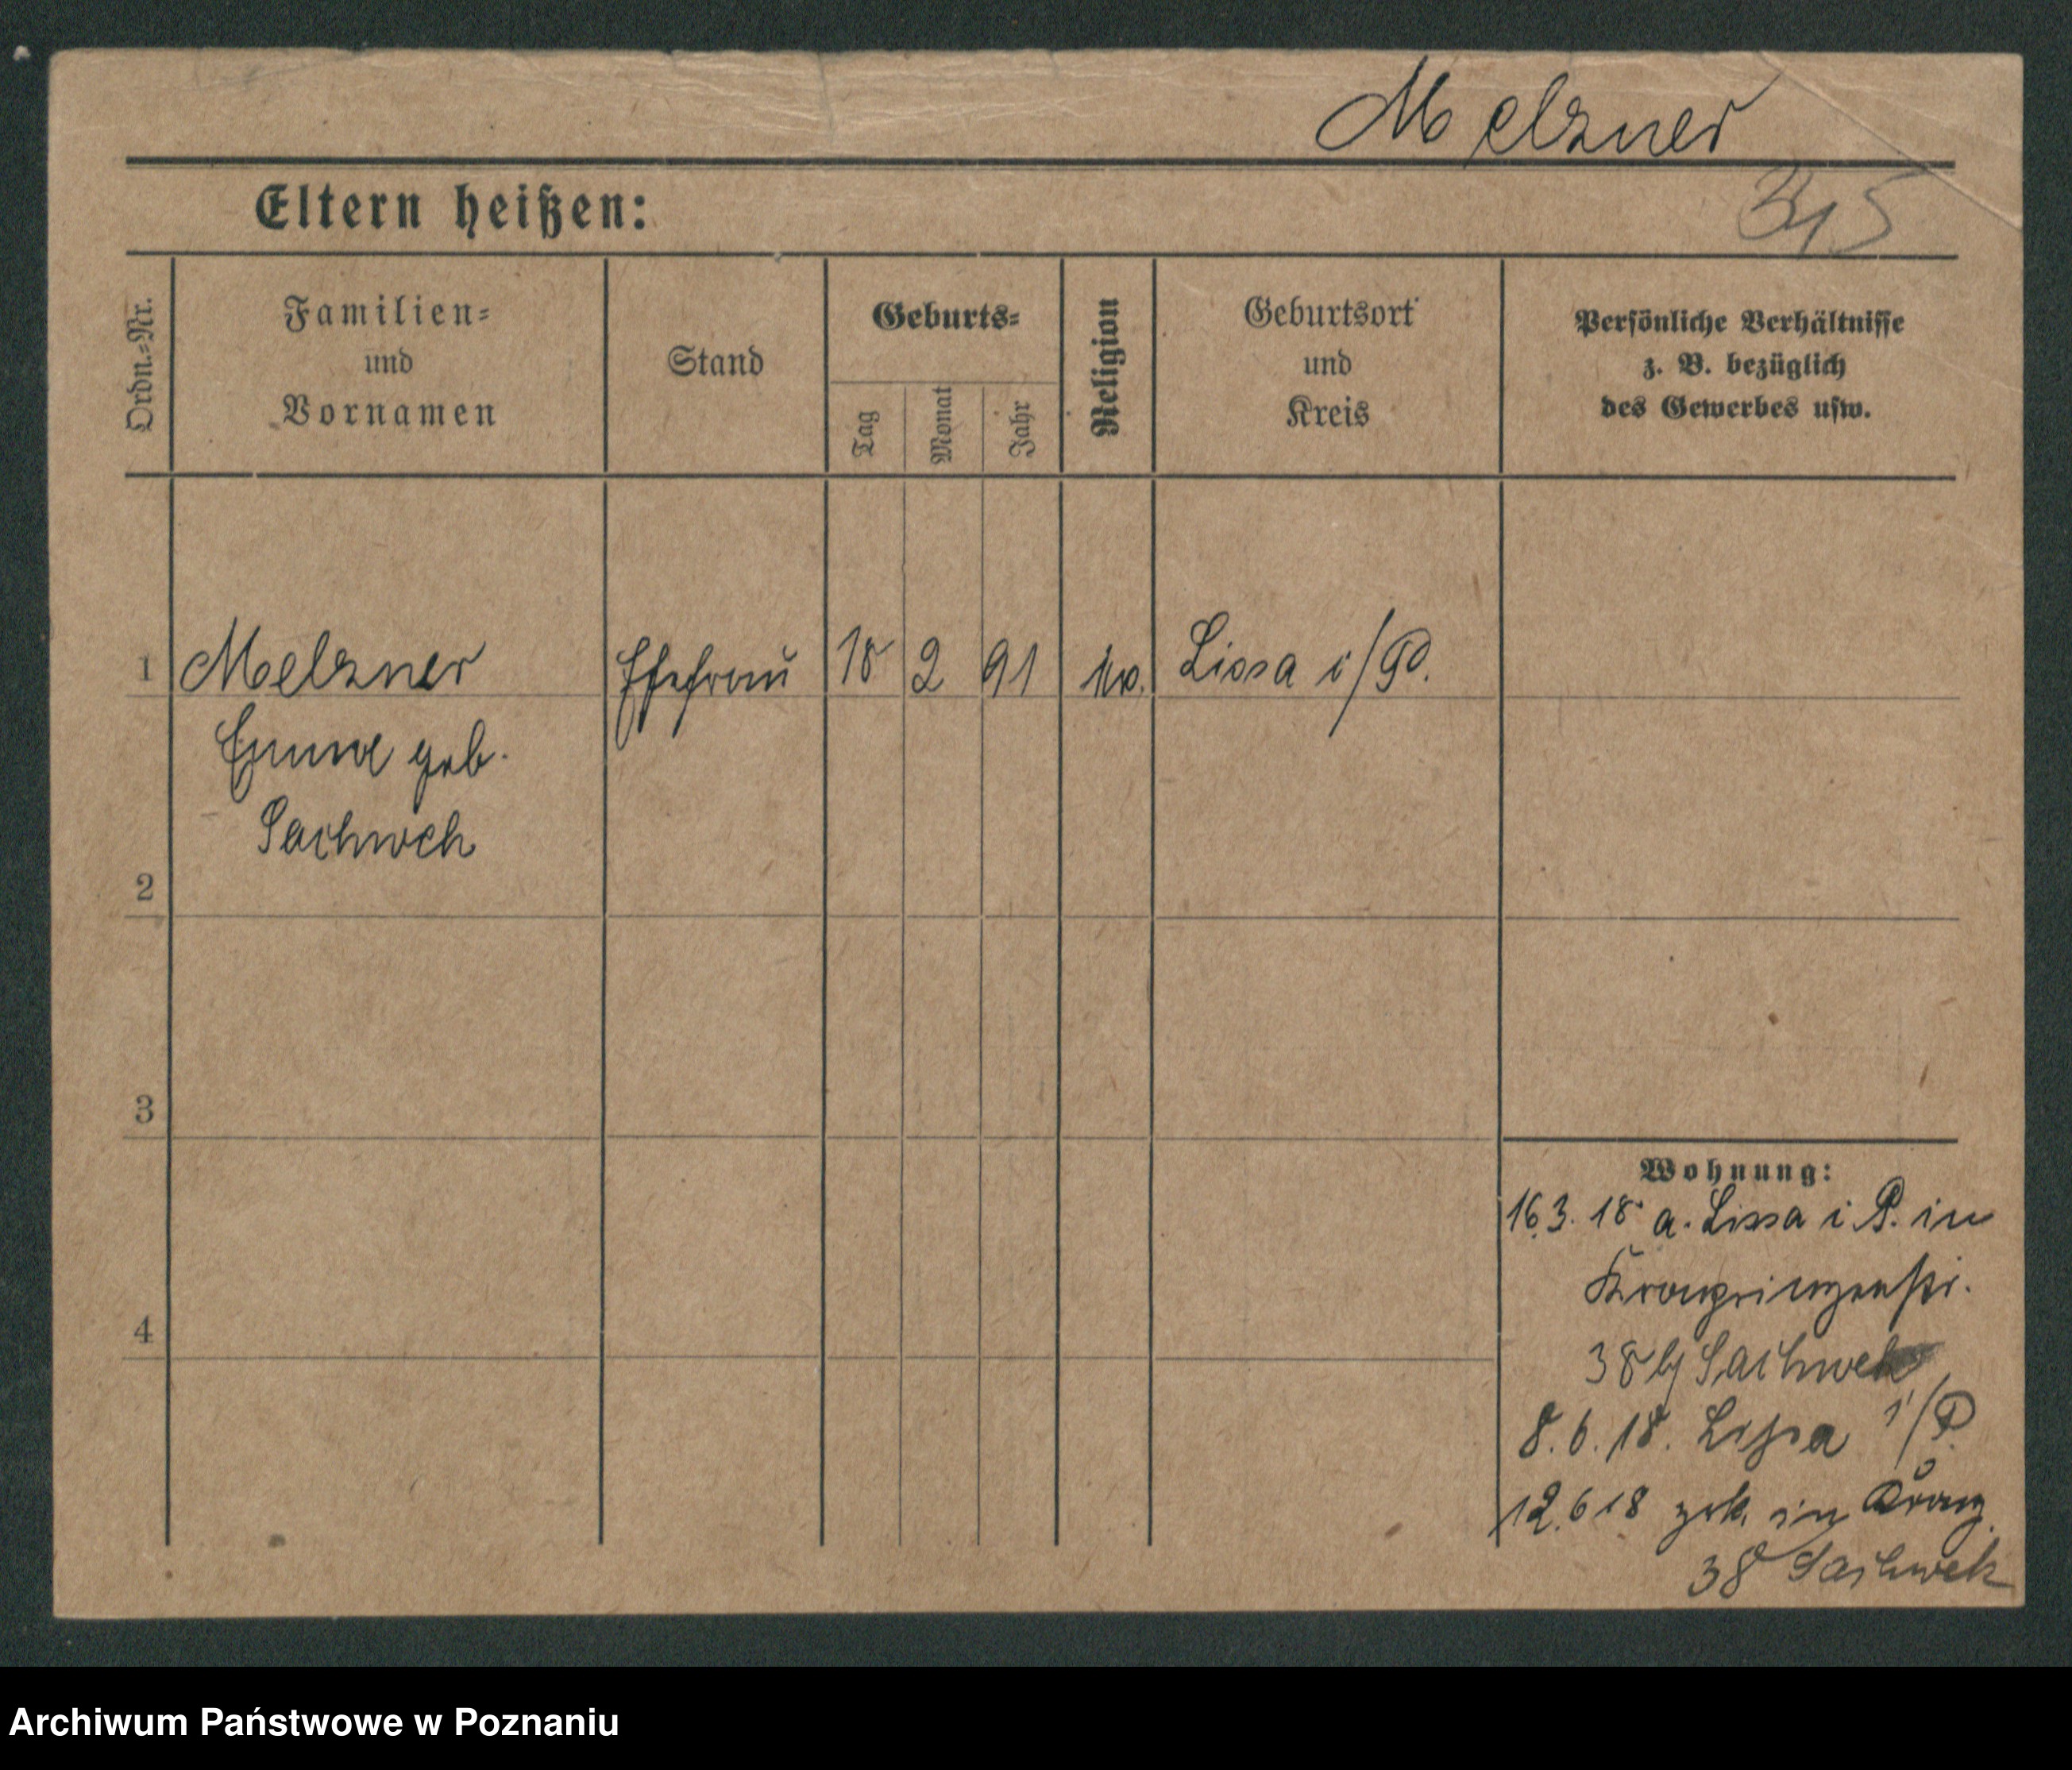 Melzner
Eltern heißen:
345
Ordn.-Nr.
Familien-
und
Vornamen
Stand
Geburts-
Tag
Monat
Jahr
Religion
Geburtsort
und
Kreis
Persönliche Verhältnisse
z. B. bezüglich
des Gewerbes usw.
1 Melzner Ehefrau 18 2 91 Lissa i/P.
Emma geb.
Sachweh
2
3
4
Wohnung:
16.3.18 a. Lissa i P. in
Kronprinzenstr.
38 b/ Sachweh
8.6.18. Lissa i/P.
12.6 18 zrk. in Kronp.
38 Sachweh
Archiwum Państwowe w Poznaniu